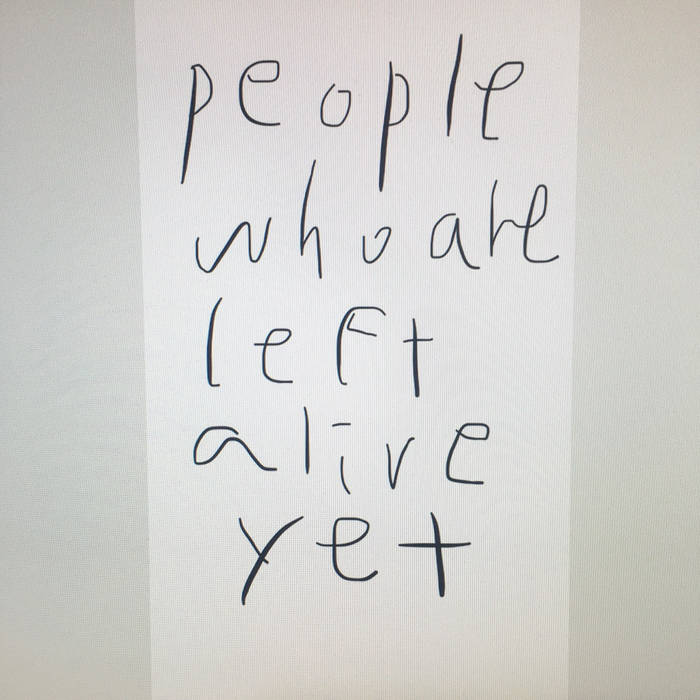 people
who are
left
alive
yet